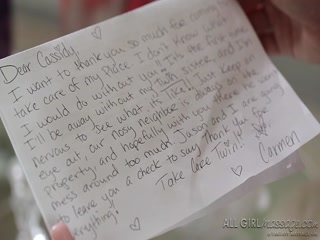 Dear Cassidy,
I want to thank you so much for coming to
take care of my place. I don't know what
I would do without you!! It's the first time
I'll be away without my twin sister and I'm
nervous to see what its like! Just keep an
eye out, our nosey neighbor is always on the
property and hopefully with you there he won't
mess around too much. Jason and I are going
to leave you a check to say thank you for
everything!
Take Care Twin!!
Carmen
ALL GIRL massage.com